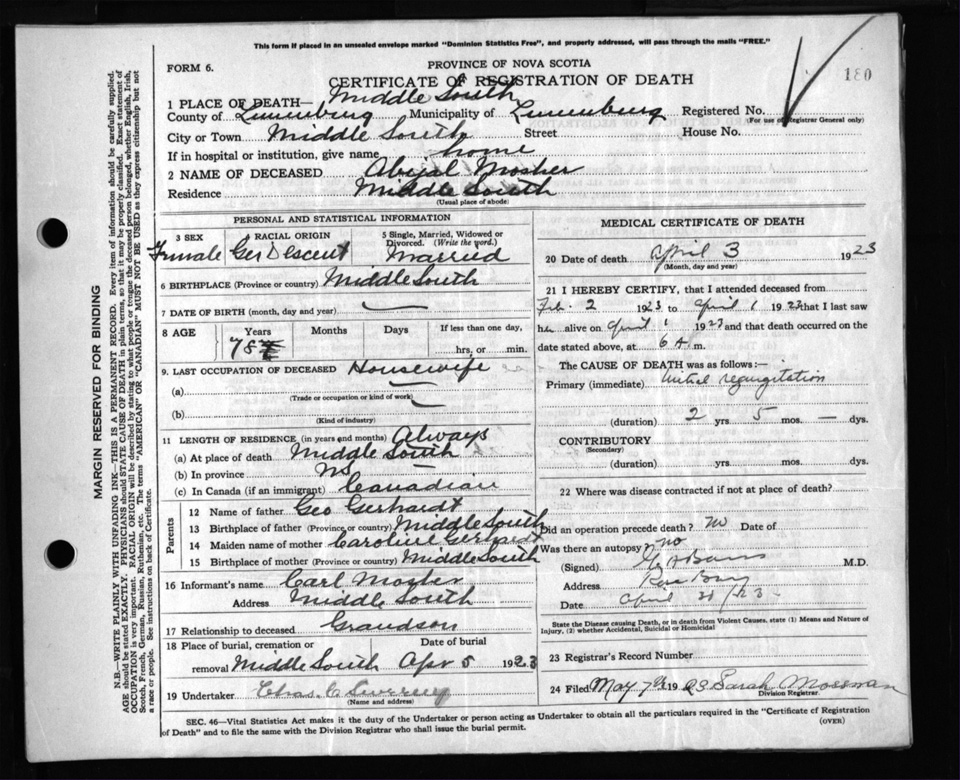 This form if placed in an unsealed envelope marked "Dominion Statistics Free", and properly addressed, will pass through the mails "FREE."
FORM 6.
PROVINCE OF NOVA SCOTIA
180
CERTIFICATE OF REGISTRATION OF DEATH
1 PLACE OF DEATH— Middle South
County of Lunenburg Municipality of Lunenburg Registered No.
(For use of Registrar General only)
City or Town Middle South Street House No.
If in hospital or institution, give name home
2 NAME OF DECEASED Abijal Mosher
Residence Middle South
(Usual place of abode)
PERSONAL AND STATISTICAL INFORMATION
3 SEX RACIAL ORIGIN 5 Single, Married, Widowed or Divorced. (Write the word.)
Female Ger Descent Married
6 BIRTHPLACE (Province or country) Middle South
7 DATE OF BIRTH (month, day and year) —
8 AGE Years Months Days If less than one day,
78 hrs. or min.
9. LAST OCCUPATION OF DECEASED Housewife
(a) —
(Trade or occupation or kind of work)
(b) —
(Kind of industry)
11 LENGTH OF RESIDENCE (in years and months) Always
(a) At place of death Middle South
(b) In province NS —
(c) In Canada (if an immigrant) Canadian
Parents
12 Name of father Geo Gerhardt
13 Birthplace of father (Province or country) Middle South
14 Maiden name of mother Caroline Gerhardt
15 Birthplace of mother (Province or country) Middle South
16 Informant's name Carl Mosher
Address Middle South
17 Relationship to deceased Grandson
18 Place of burial, cremation or removal Date of burial
Middle South Apr 5 1923
19 Undertaker Chas. C
(Name and address)
MEDICAL CERTIFICATE OF DEATH
20 Date of death April 3 1923
(Month, day and year)
21 I HEREBY CERTIFY, that I attended deceased from
Feb. 2 1923 to April 1 1923 that I last saw
her alive on April 1 1923 and that death occurred on
date stated above, at 6 A.m.
The CAUSE OF DEATH was as follows:—
Primary (immediate) Mitral regurgitation
(duration) 2 yrs 5 mos. — dys.
CONTRIBUTORY
(Secondary)
(duration) yrs. mos. dys.
22 Where was disease contracted if not at place of death?
Did an operation precede death? no Date of
Was there an autopsy? no
(Signed) M.D.
Address Rose Bay
Date April 1923
State the Disease causing Death, or in death from Violent Causes, state (1) Means and Nature of Injury, (2) whether Accidental, Suicidal or Homicidal
23 Registrar's Record Number
24 Filed May 7th 1923 Sarah Mossman
Division Registrar.
SEC. 46—Vital Statistics Act makes it the duty of the Undertaker or person acting as Undertaker to obtain all the particulars required in the "Certificate of Registration of Death" and to file the same with the Division Registrar who shall issue the burial permit.
(OVER)
MARGIN RESERVED FOR BINDING
N.B.—WRITE PLAINLY WITH UNFADING INK—THIS IS A PERMANENT RECORD. Every item of information should be carefully supplied.
AGE should be stated EXACTLY. PHYSICIANS should STATE CAUSE OF DEATH in plain terms, so that it may be properly classified. Exact statement of
OCCUPATION is very important. RACIAL ORIGIN will be described by stating to what people or tongue the deceased person belonged, whether English, Irish,
Scotch, French, German, Russian, Ruthenian, etc. The terms "AMERICAN" or "CANADIAN" MUST NOT BE USED as they express citizenship but not
a race or people. See instructions on back of Certificate.